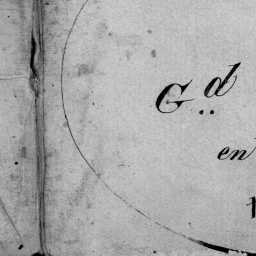 G.d
en